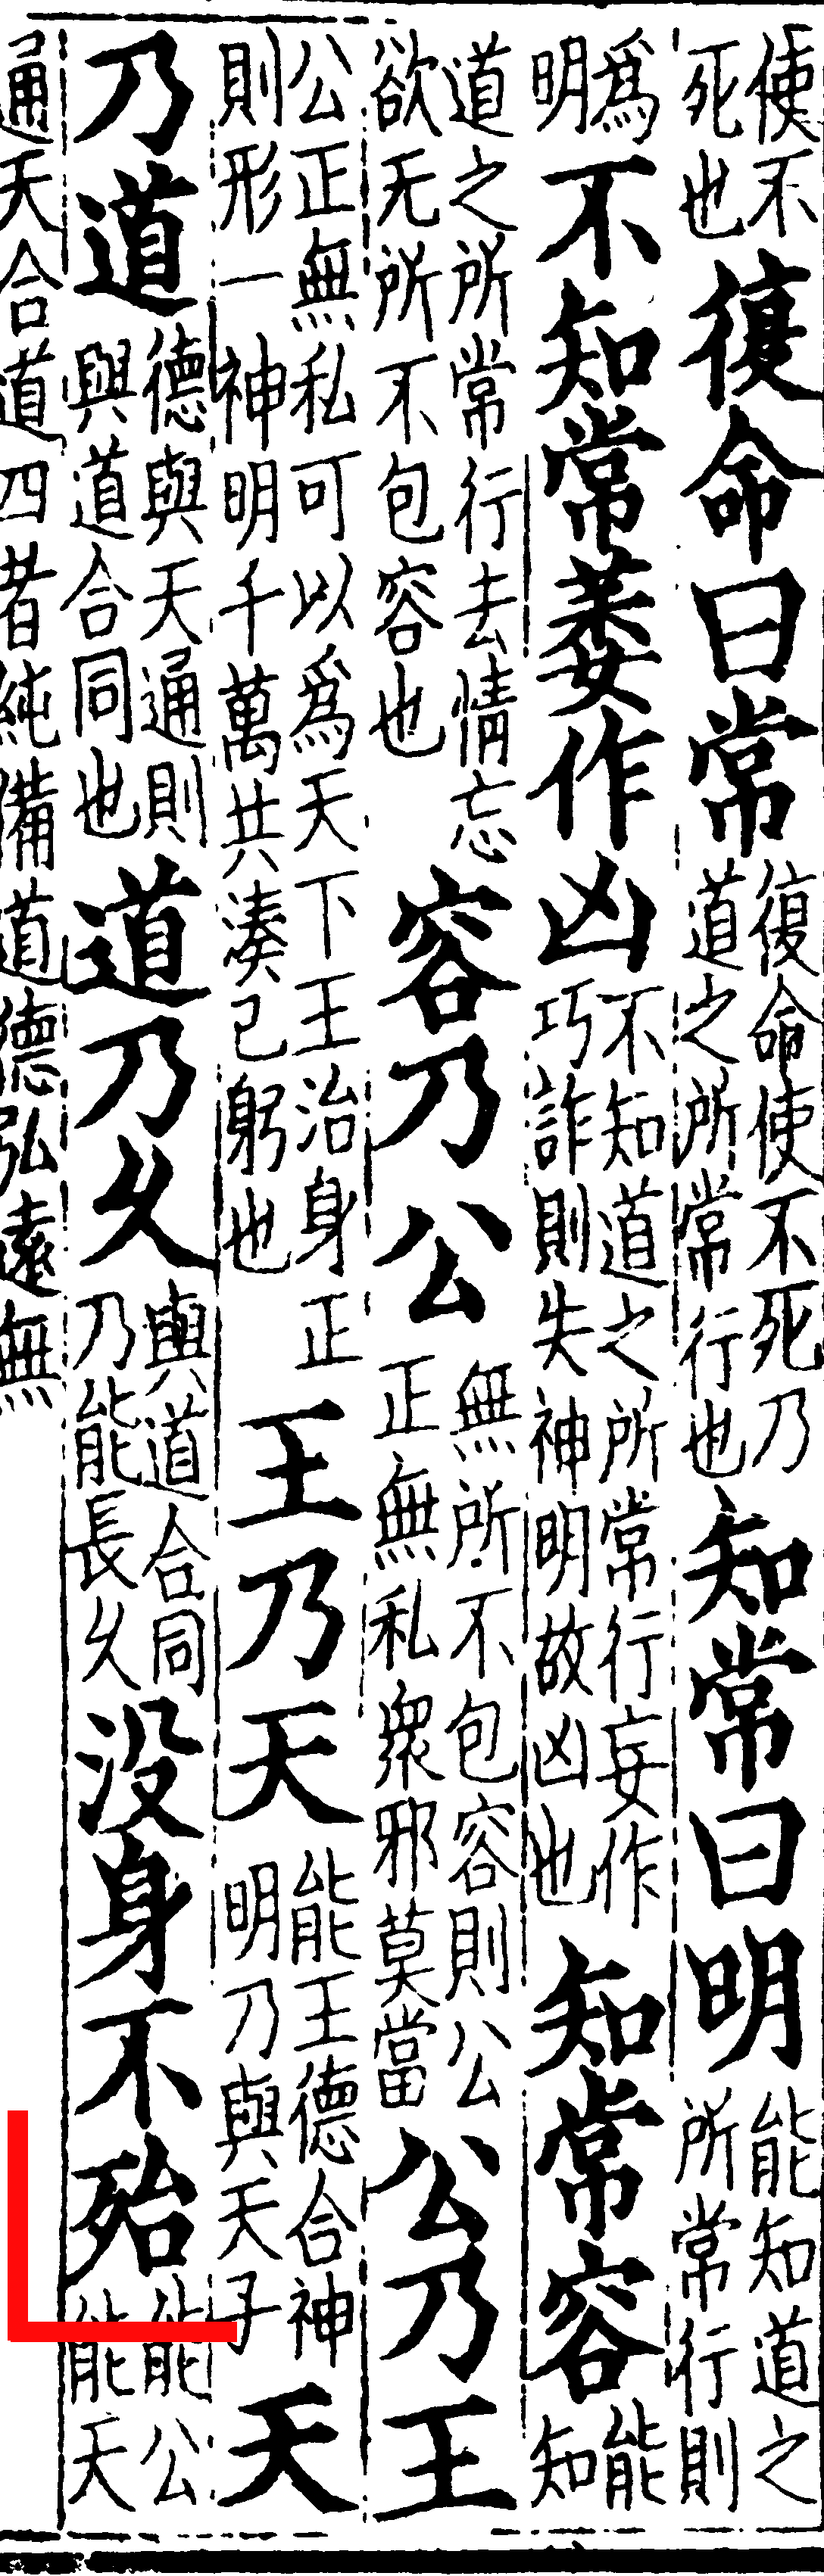 使不死也復命曰常復命使不死乃道之所常行也知常曰明能知道之所常行則
爲明不知常萎作凶不知道之所常行妄作巧詐則失神明故凶也知常容能知
道之所常行去情忘欲无所不包容也容乃公無所不包容則公正無私衆邪莫當公乃王
公正無私可以爲天下王治身正則形一神明千萬共湊己躬也王乃天能王德合神明乃與天子天
乃道德與天通則與道合同也道乃久與道合同乃能長久没身不殆能公能天
通天合道四者純備道德弘遠無